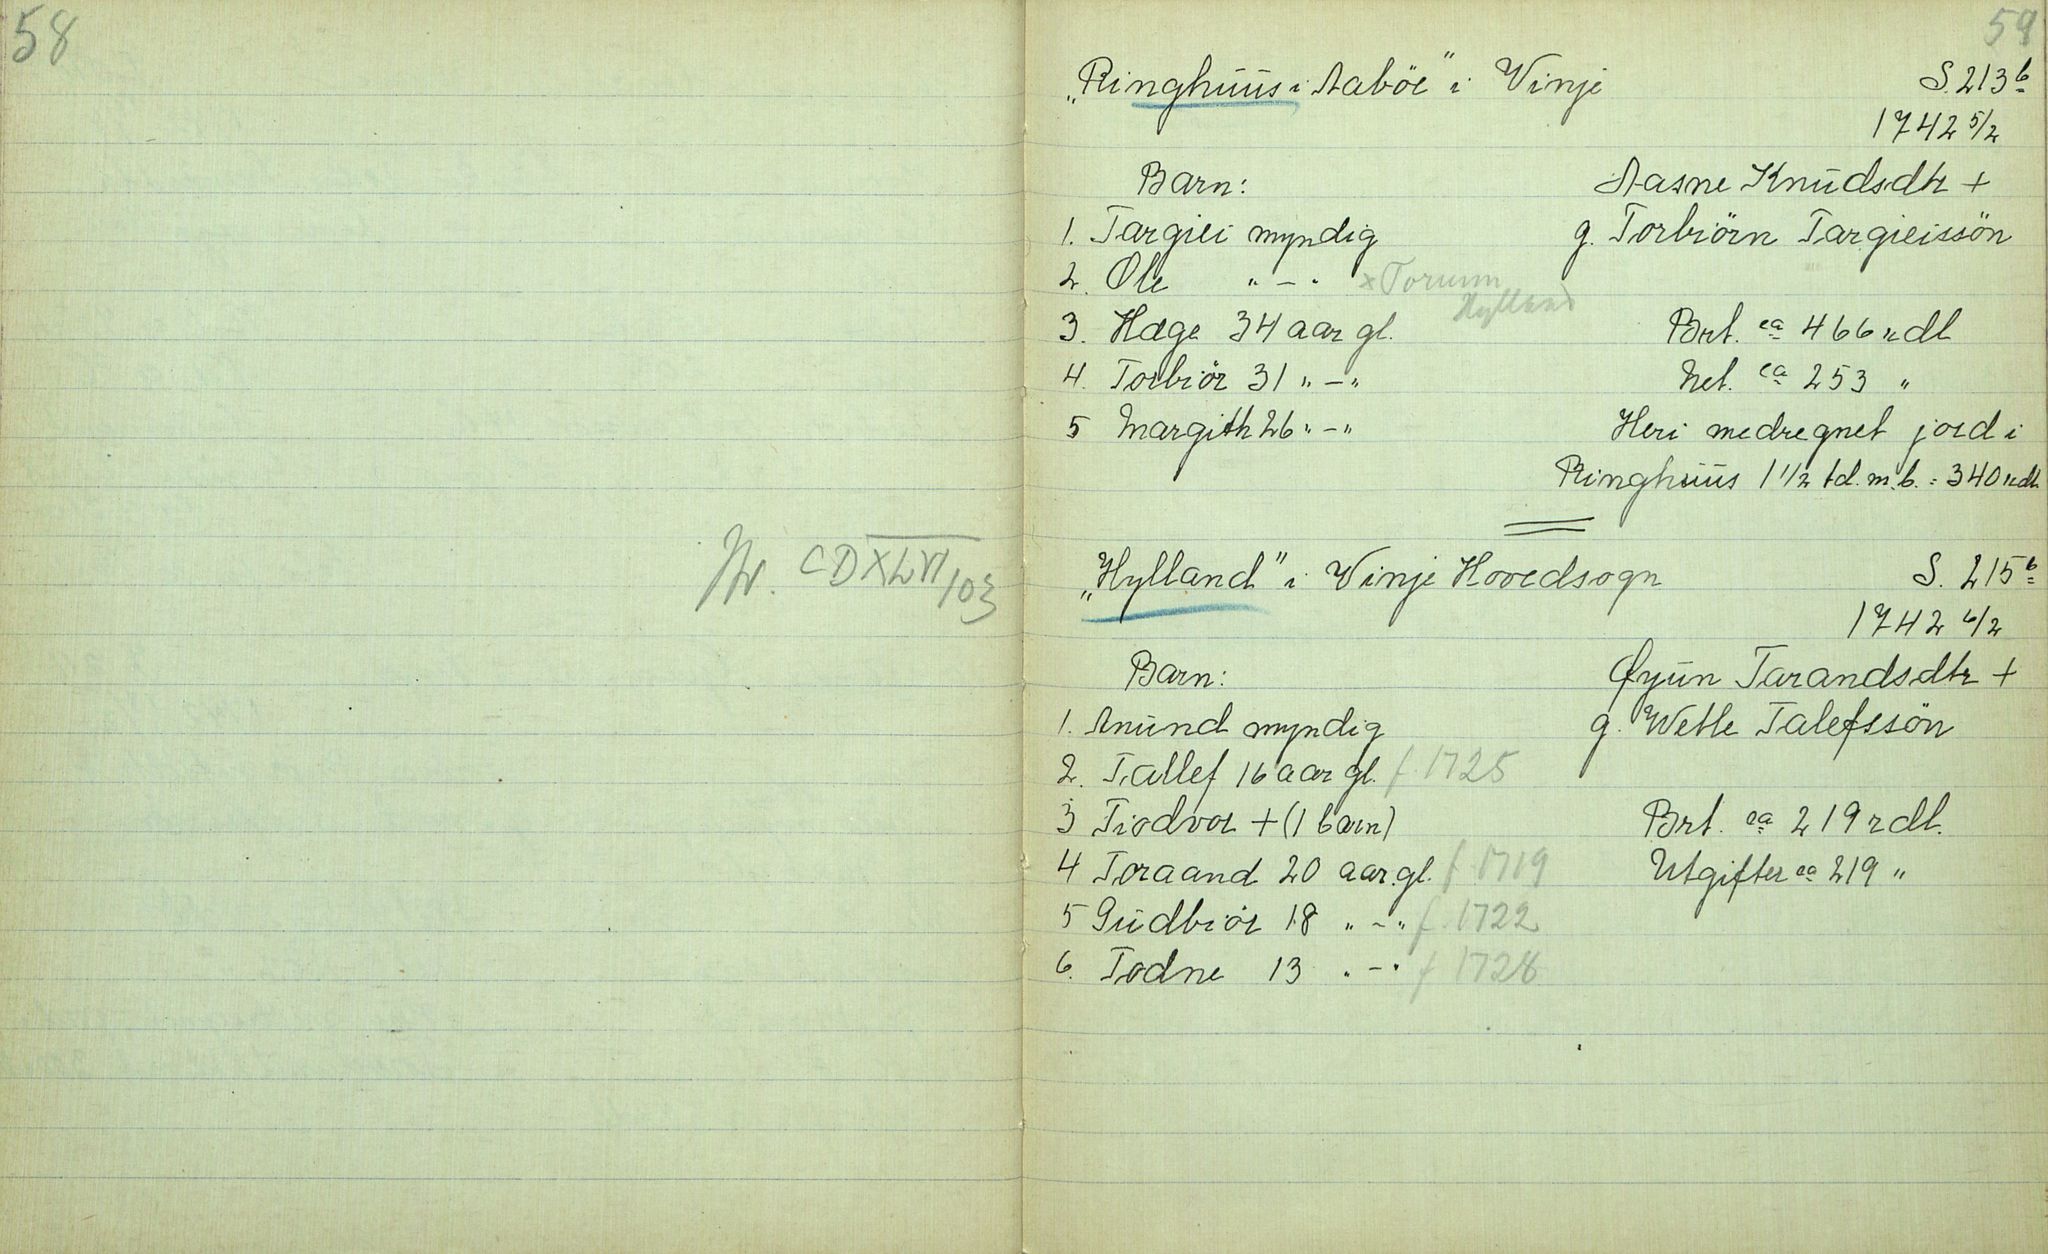 58
Nr. CDXLVI/103
59
"Ringhuus i Aaböe" i Vinje S. 213 b
1742 5/2
Barn: Aasne Knudsdtr +
1. Targiei myndig g. Torbiörn Targieissön
2. Ole " - " x Torunn
Hylland
3. Hæge 34 aar gl. Brt. ca 466 rdl
4. Torbiör 31 " - " Net. ca 253 "
5 Margith 26 " - " Heri medregnet jord i
Ringhuus 1 1/2 td. m. b. = 340 rdl.
"Hylland" i Vinje Hovedsogn S. 215 b
1742 6/2
Barn: Øyun Tarandsdtr +
1. Anund myndig g. Wetle Talefssön
2. Tallef 16 aar gl. f. 1725
3 Tiodvor + (1 barn) Brt. ca 219 rdl.
4 Toraand 20 aar gl. f. 1719 Utgifter ca 219 "
5 Gudbiör 18 " - " f. 1722
6. Todne 13 " - " f 1728